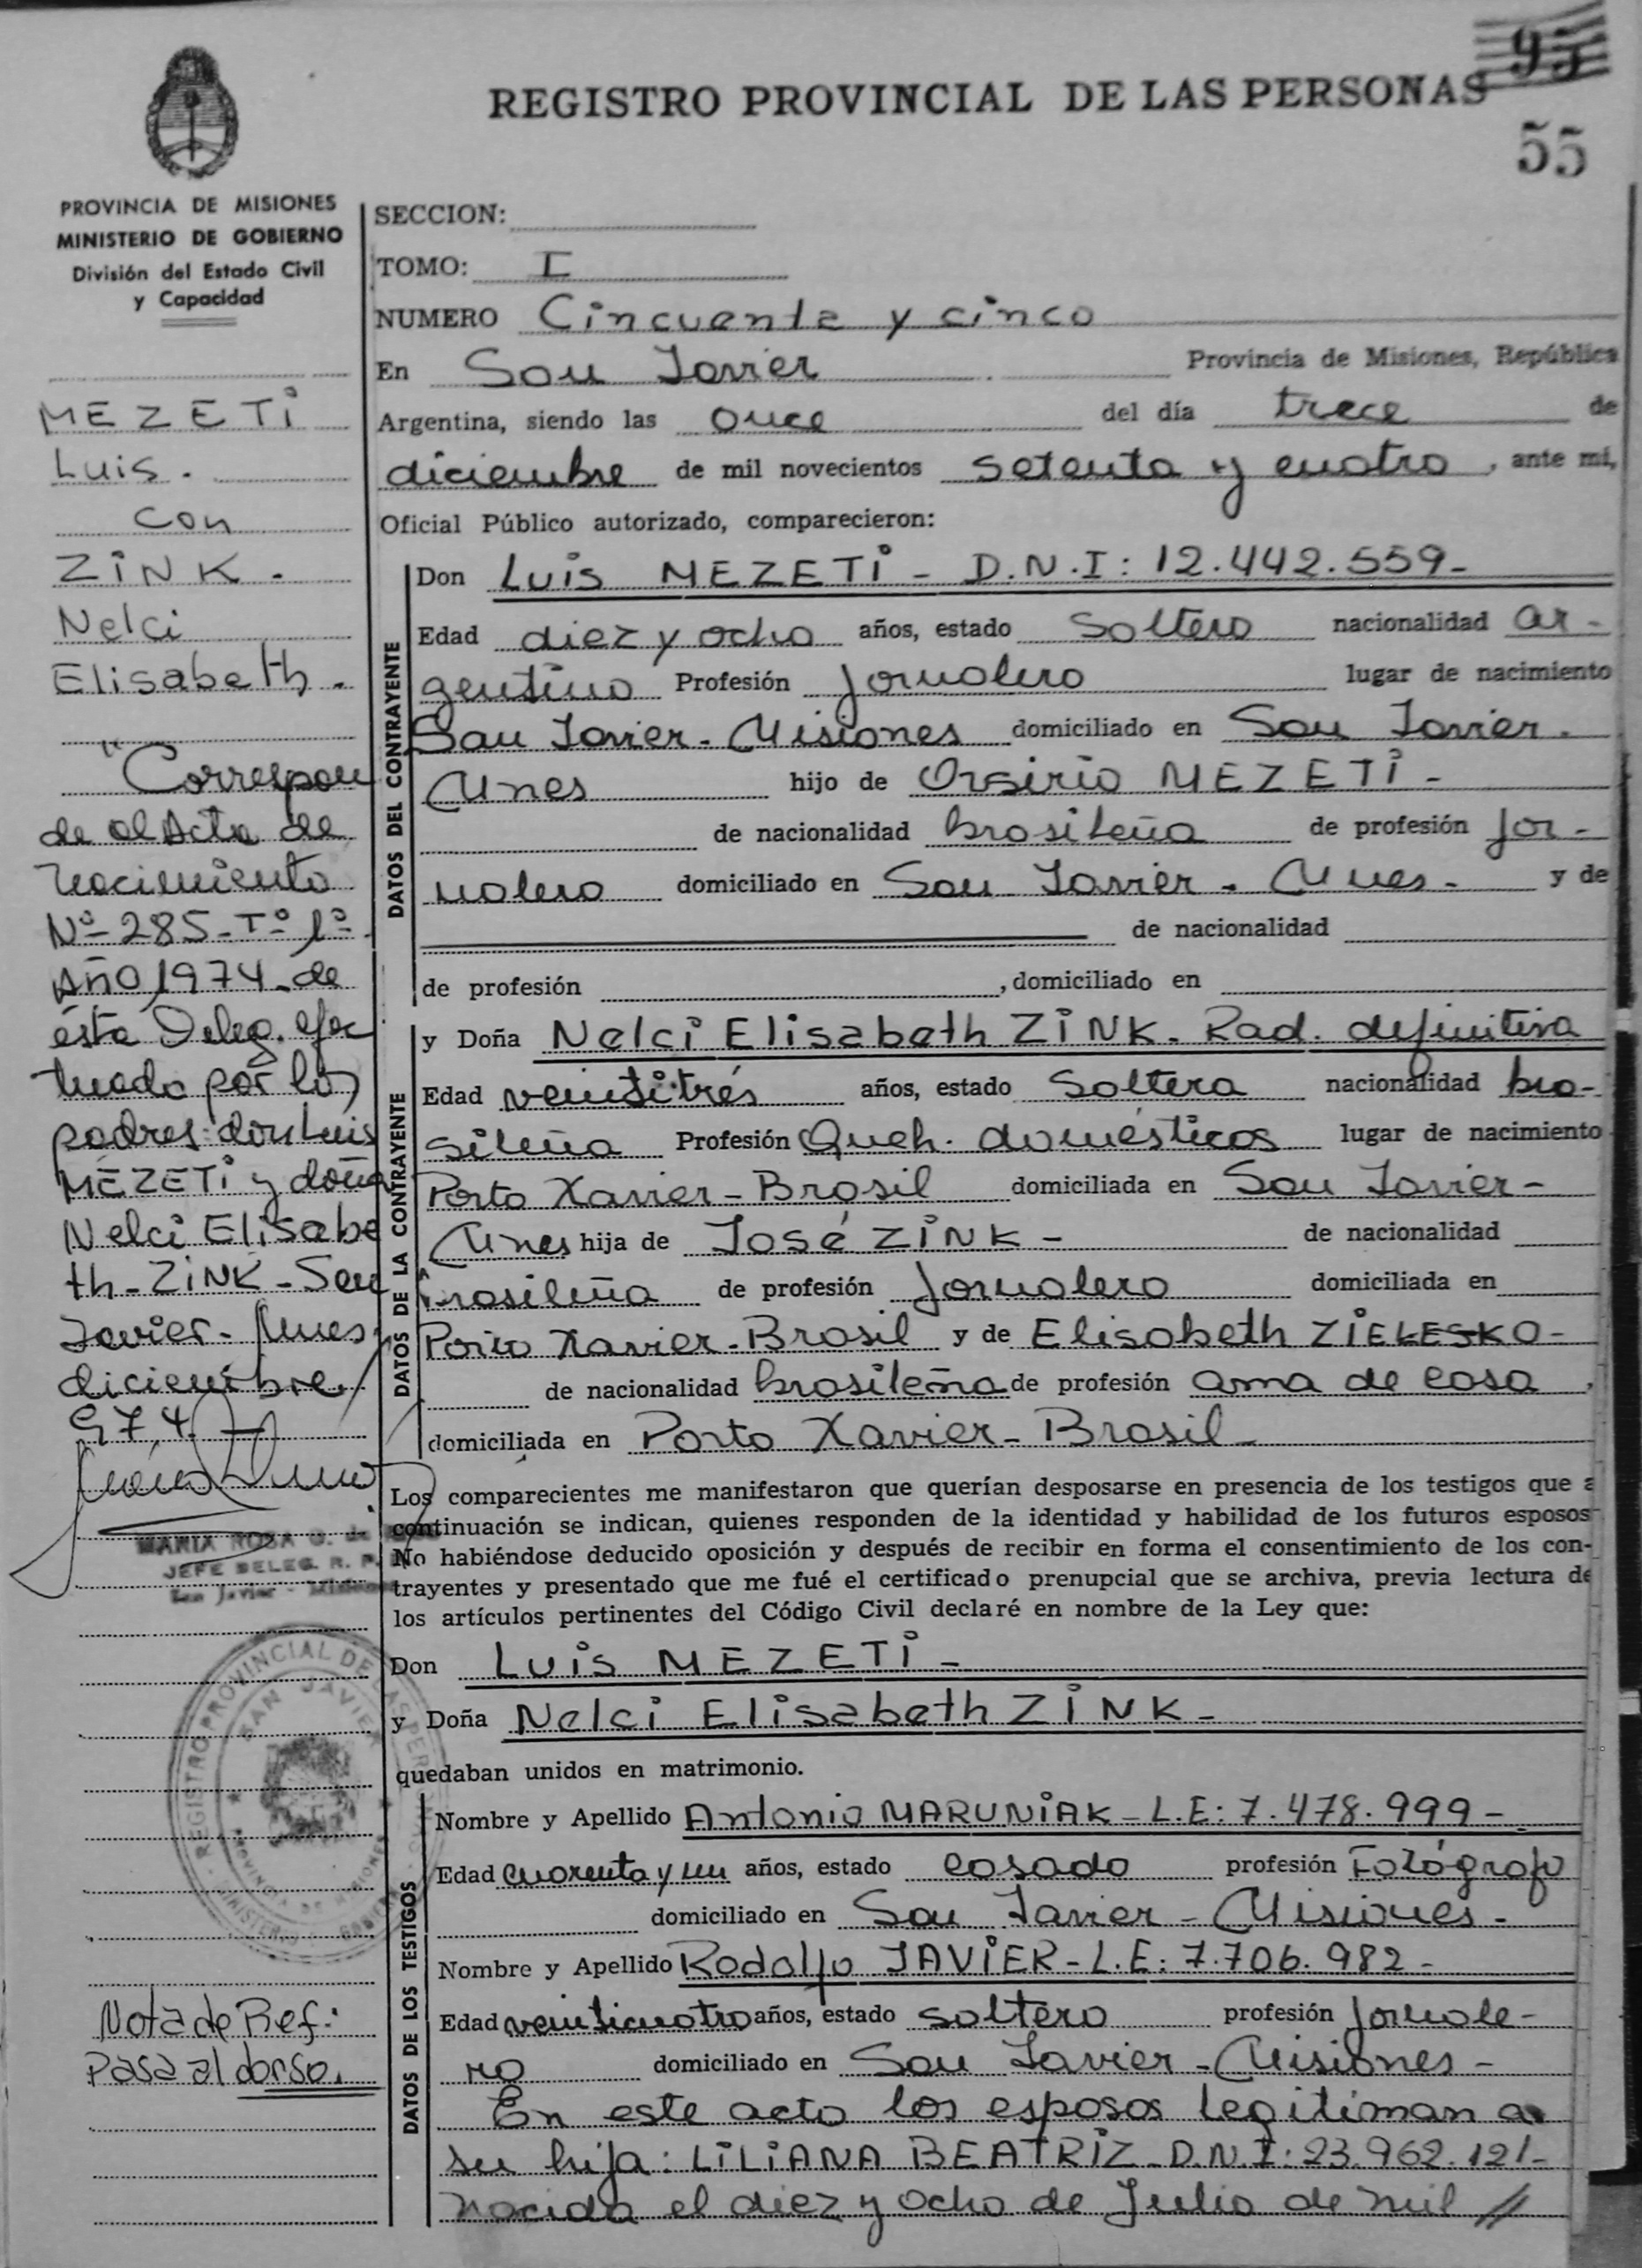 95
REGISTRO PROVINCIAL DE LAS PERSONAS
55
PROVINCIA DE MISIONES
MINISTERIO DE GOBIERNO
División del Estado Civil
y Capacidad
MEZETI
Luis.
con
ZINK.
Nelci
Elisabeth.
"Correspon
de al Acta de
Nacimiento
Nº 285-Tº 1º
Año 1974-de
ésta Deleg. efec
tuada por los
padres: don Luis
MEZETI y doña
Nelci Elisabe
th-ZINK-San
Javier-Mnes
diciembre
974
MARIA ROSA G. de
JEFE DELEG. R. P.
San Javier - Misiones
REGISTRO PROVINCIAL DE LAS PERSONAS
SAN JAVIER
PROVINCIA DE MISIONES
MINISTERIO GOBIERNO
Nota de Ref:
Pasa al dorso.
SECCION:
TOMO: I
NUMERO Cincuenta y cinco
En San Javier Provincia de Misiones, República
Argentina, siendo las once del día trece de
diciembre de mil novecientos setenta y cuatro, ante mí,
Oficial Público autorizado, comparecieron:
DATOS DEL CONTRAYENTE
Don Luis MEZETI - D.N.I: 12.442.559-
Edad diez y ocho años, estado soltero nacionalidad ar-
gentino Profesión jornalero lugar de nacimiento
San Javier-Misiones domiciliado en San Javier.
Mnes hijo de Orsirio MEZETI-
de nacionalidad brasileña de profesión jor-
nalero domiciliado en San Javier-Mnes- y de
de nacionalidad
de profesión , domiciliado en
DATOS DE LA CONTRAYENTE
y Doña Nelci Elisabeth ZINK-Rad. definitiva
Edad veintitrés años, estado Soltera nacionalidad bra-
sileña Profesión Queh. domésticos lugar de nacimiento
Porto Xavier-Brasil domiciliada en San Javier-
Mnes hija de José ZINK- de nacionalidad
brasileña de profesión jornalero domiciliada en
Porto Xavier-Brasil y de Elisabeth ZIELESKO-
de nacionalidad brasileña de profesión ama de casa,
domiciliada en Porto Xavier-Brasil
Los comparecientes me manifestaron que querían desposarse en presencia de los testigos que a
continuación se indican, quienes responden de la identidad y habilidad de los futuros esposos
No habiéndose deducido oposición y después de recibir en forma el consentimiento de los con-
trayentes y presentado que me fué el certificado prenupcial que se archiva, previa lectura de
los artículos pertinentes del Código Civil declaré en nombre de la Ley que:
Don Luis MEZETI-
y Doña Nelci Elisabeth ZINK-
quedaban unidos en matrimonio.
DATOS DE LOS TESTIGOS
Nombre y Apellido Antonio MARUNIAK-L.E: 7.478.999-
Edad cuarenta y un años, estado casado profesión Fotógrafo
domiciliado en San Javier-Misiones-
Nombre y Apellido Rodolfo JAVIER-L.E: 7.706.982-
Edad veinticuatro años, estado soltero profesión jornale-
ro domiciliado en San Javier-Misiones-
En este acto los esposos legitiman a
su hija: LILIANA BEATRIZ-D.N.I: 23.962.121-
nacida el diez y ocho de Julio de mil //